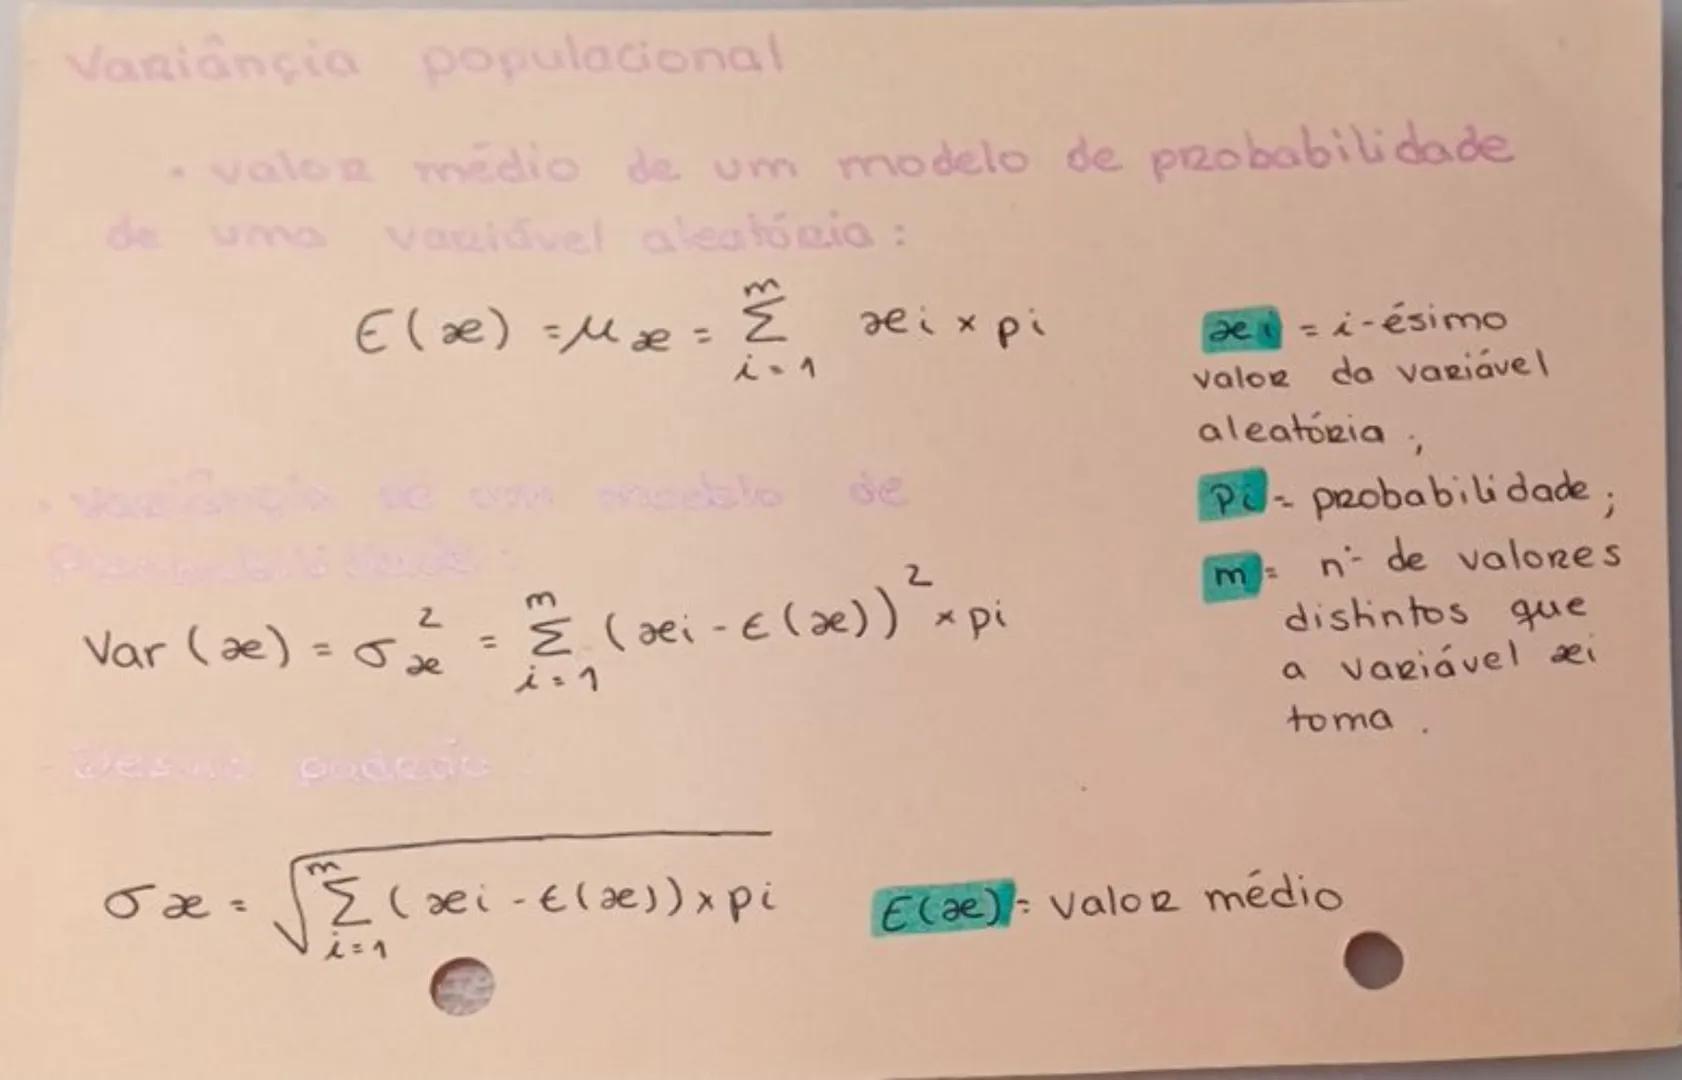 Variância populacional
• valor médio de um modelo de probabilidade
de uma variável aleatória :
E(x) = μx = m Σ i=1 xi × pi
xi = i-ésimo
valor da variável
aleatória ;
Pi = probabilidade ;
m = nº de valores
distintos que
a variável xi
toma .
• Variância de um modelo de
Probabilidade :
Var (x) = σ²x = m Σ i=1 (xi - E(x))² × pi
Desvio padrão
σx = √ m Σ i=1 (xi - E(x)) × pi
E(x) = valor médio